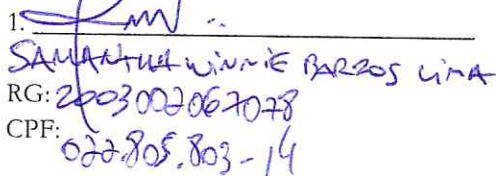 1.
SAMANTHA WINNIE BARROS LIMA
RG: 2003002067078
CPF:
022.805.803-14